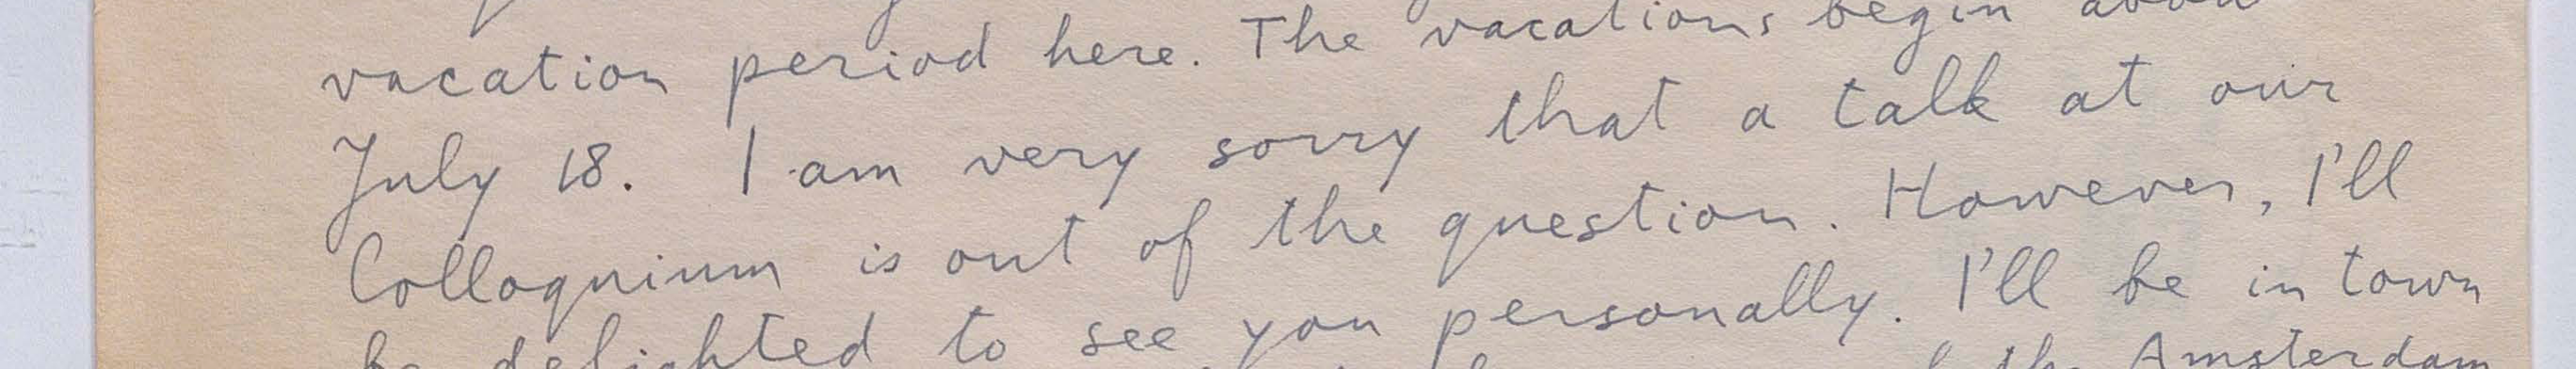 vacation period here. The vacations begin about
July 18. I am very sorry that a talk at our
Colloquium is out of the question. However, I'll
be delighted to see you personally. I'll be in town
the Amsterdam